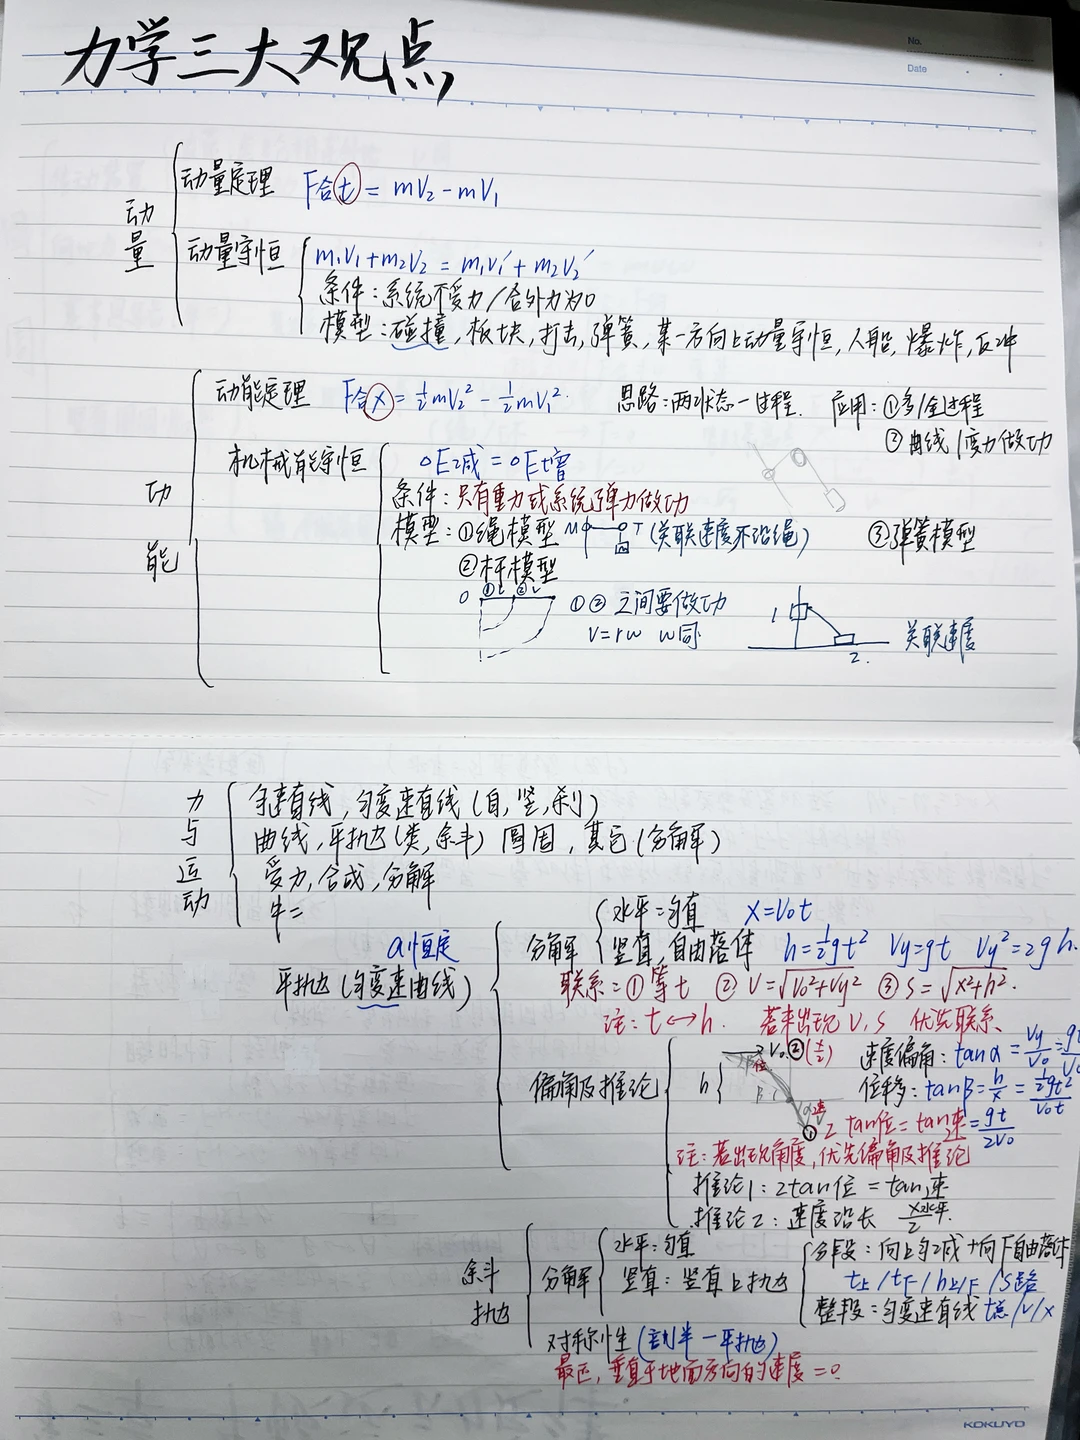 力学三大观点
No.
Date
动量
动量定理 F合t = mV₂-mV₁
动量守恒
m₁V₁+m₂V₂ = m₁V₁′+m₂V₂′
条件:系统不受力/合外力为0
模型:碰撞,板块,打击,弹簧,某一方向上动量守恒,人船,爆炸,反冲
功能
动能定理 F合x = ½mV₂² - ½mV₁². 思路:两状态一过程. 应用:①多/全过程
②曲线/变力做功
机械能守恒 △E减 = △E增
条件:只有重力或系统弹力做功
模型:①绳模型 M T (关联速度不沿绳) ③弹簧模型
②杆模型
O ① L ② L ①② 之间要做功
V=rw w同
1 2. 关联速度
力与运动
匀速直线,匀变速直线(自,竖,刹)
曲线,平抛(类,斜) 圆周,其它(分解)
受力,合成,分解
牛二
a恒定
平抛(匀变速曲线)
分解 水平:匀直 X=V₀t
竖直,自由落体 h=½gt² Vy=gt Vy²=2gh.
联系:①等t ②V=√V₀²+Vy² ③S=√x²+h².
注:t↔h. 若未出现V,S 优先联系.
偏角及推论 h V₀ ②(x/2) 位 β 速 ①
速度偏角:tanα=Vy/V₀=
位移:tanβ=h/x=½gt²/V₀t
2 tan位=tan速 =gt/2V₀
注:若出现角度,优先偏角及推论
推论1:2tan位=tan速
推论2:速度沿长 X水平/2.
斜抛
分解 水平:匀直
竖直:竖直上抛
分段:向上匀减+向下自由落体
t上/t下/h上/下/S路
整段:匀变速直线 t总/V/x
对称性(剖半-平抛)
最远,垂直于地面方向的速度=0.
KOKUYO